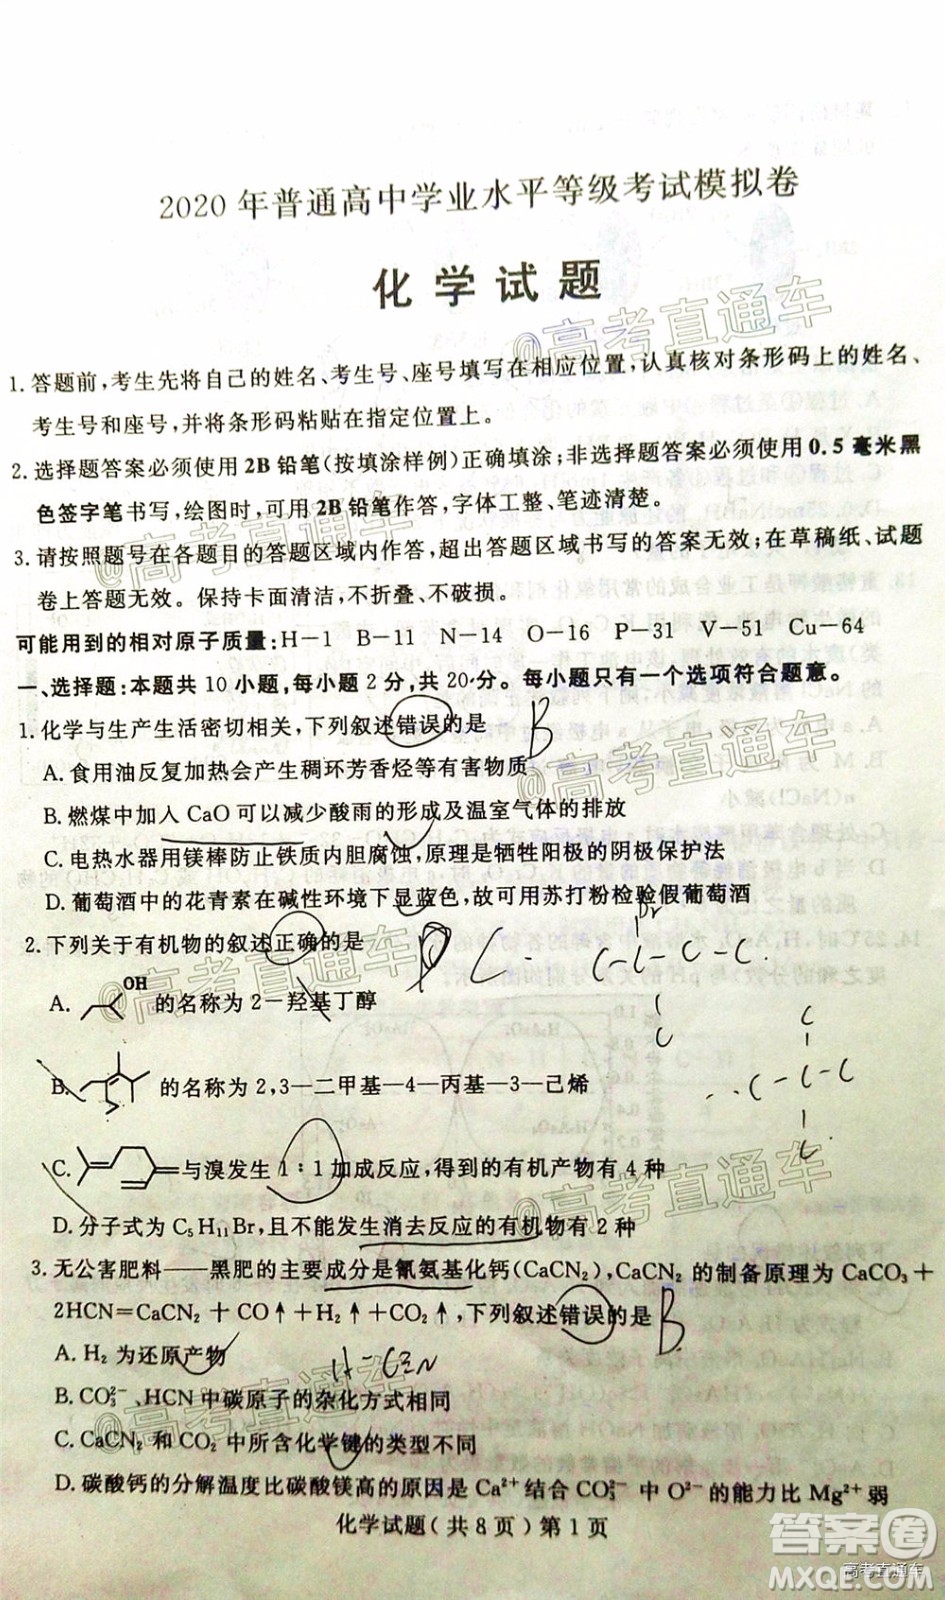 2020年普通高中学业水平等级考试模拟卷
化学试题
@高考直通车
1.答题前,考生先将自己的姓名、考生号、座号填写在相应位置,认真核对条形码上的姓名、
考生号和座号,并将条形码粘贴在指定位置上。
2.选择题答案必须使用2B铅笔(按填涂样例)正确填涂;非选择题答案必须使用0.5毫米黑
色签字笔书写,绘图时,可用2B铅笔作答,字体工整、笔迹清楚。
@高考直通车
3.请按照题号在各题目的答题区域内作答,超出答题区域书写的答案无效;在草稿纸、试题
卷上答题无效。保持卡面清洁,不折叠、不破损。
可能用到的相对原子质量:H-1 B-11 N-14 O-16 P-31 V-51 Cu-64
一、选择题:本题共10小题,每小题2分,共20分。每小题只有一个选项符合题意。
1.化学与生产生活密切相关,下列叙述错误的是 B
@高考直通车
A.食用油反复加热会产生稠环芳香烃等有害物质
B.燃煤中加入CaO可以减少酸雨的形成及温室气体的排放
C.电热水器用镁棒防止铁质内胆腐蚀,原理是牺牲阳极的阴极保护法
D.葡萄酒中的花青素在碱性环境下显蓝色,故可用苏打粉检验假葡萄酒
2.下列关于有机物的叙述正确的是
Br
C-C-C-C
C
C
@高考直通车
A. OH 的名称为2-羟基丁醇
C
C-C-C
C
B. 的名称为2,3-二甲基-4-丙基-3-己烯
C. 与溴发生1:1加成反应,得到的有机产物有4种
@高考直通车
D.分子式为C₅H₁₁Br,且不能发生消去反应的有机物有2种
3.无公害肥料——黑肥的主要成分是氰氨基化钙(CaCN₂),CaCN₂的制备原理为CaCO₃+
2HCN=CaCN₂+CO↑+H₂↑+CO₂↑,下列叙述错误的是 B
A.H₂为还原产物
H-C≡N
@高考直通车
B.CO₃²⁻、HCN中碳原子的杂化方式相同
C.CaCN₂和CO₂中所含化学键的类型不同
D.碳酸钙的分解温度比碳酸镁高的原因是Ca²⁺结合CO₃²⁻中O²⁻的能力比Mg²⁺弱
化学试题(共8页)第1页
答案圈
高考直通车
MXQE.COM